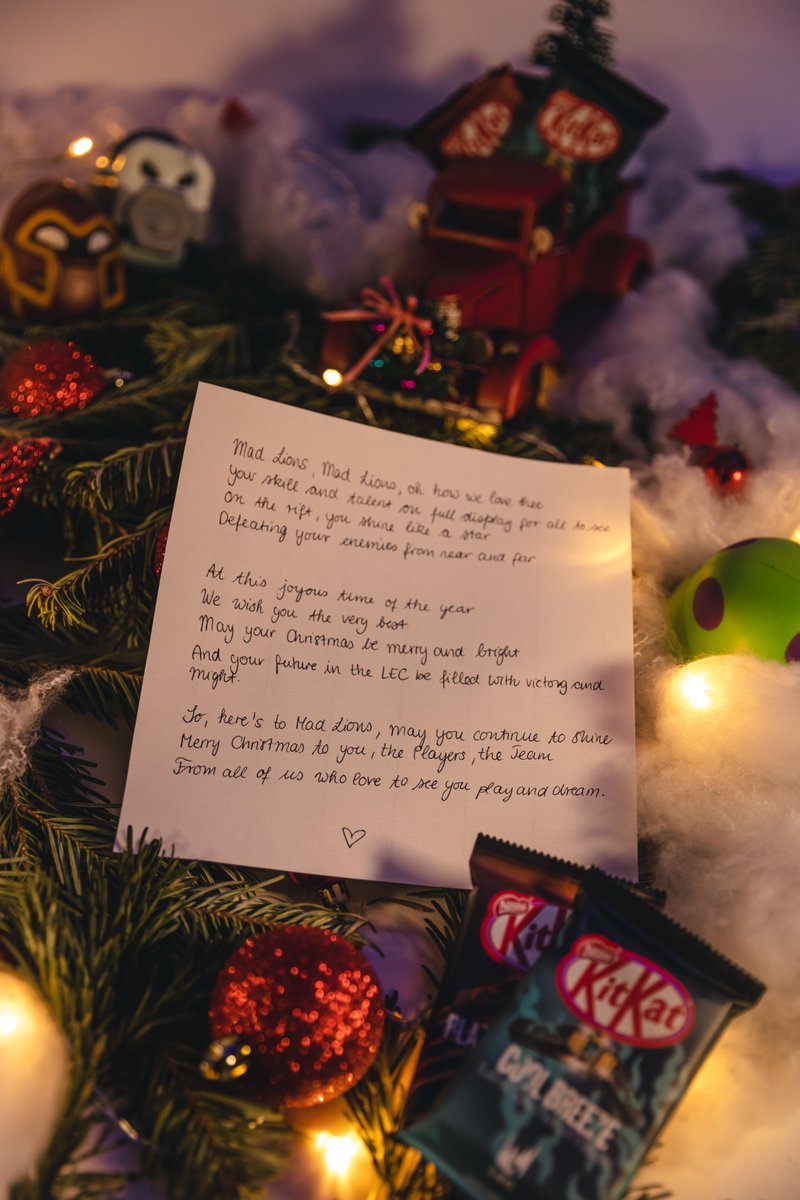 KitKat
KitKat
Mad Lions, Mad Lions, oh how we love thee
your skill and talent on full display for all to see
On the rift, you shine like a star
Defeating your enemies from near and far
At this joyous time of the year
We wish you the very best
May your Christmas be merry and bright
And your future in the LEC be filled with victory and
might.
So, here's to Mad Lions, may you continue to shine
Merry Christmas to you, the Players, the Team
From all of us who love to see you play and dream.
Nestlé
Kit
FLA
Nestlé
KitKat
COOL BREEZE